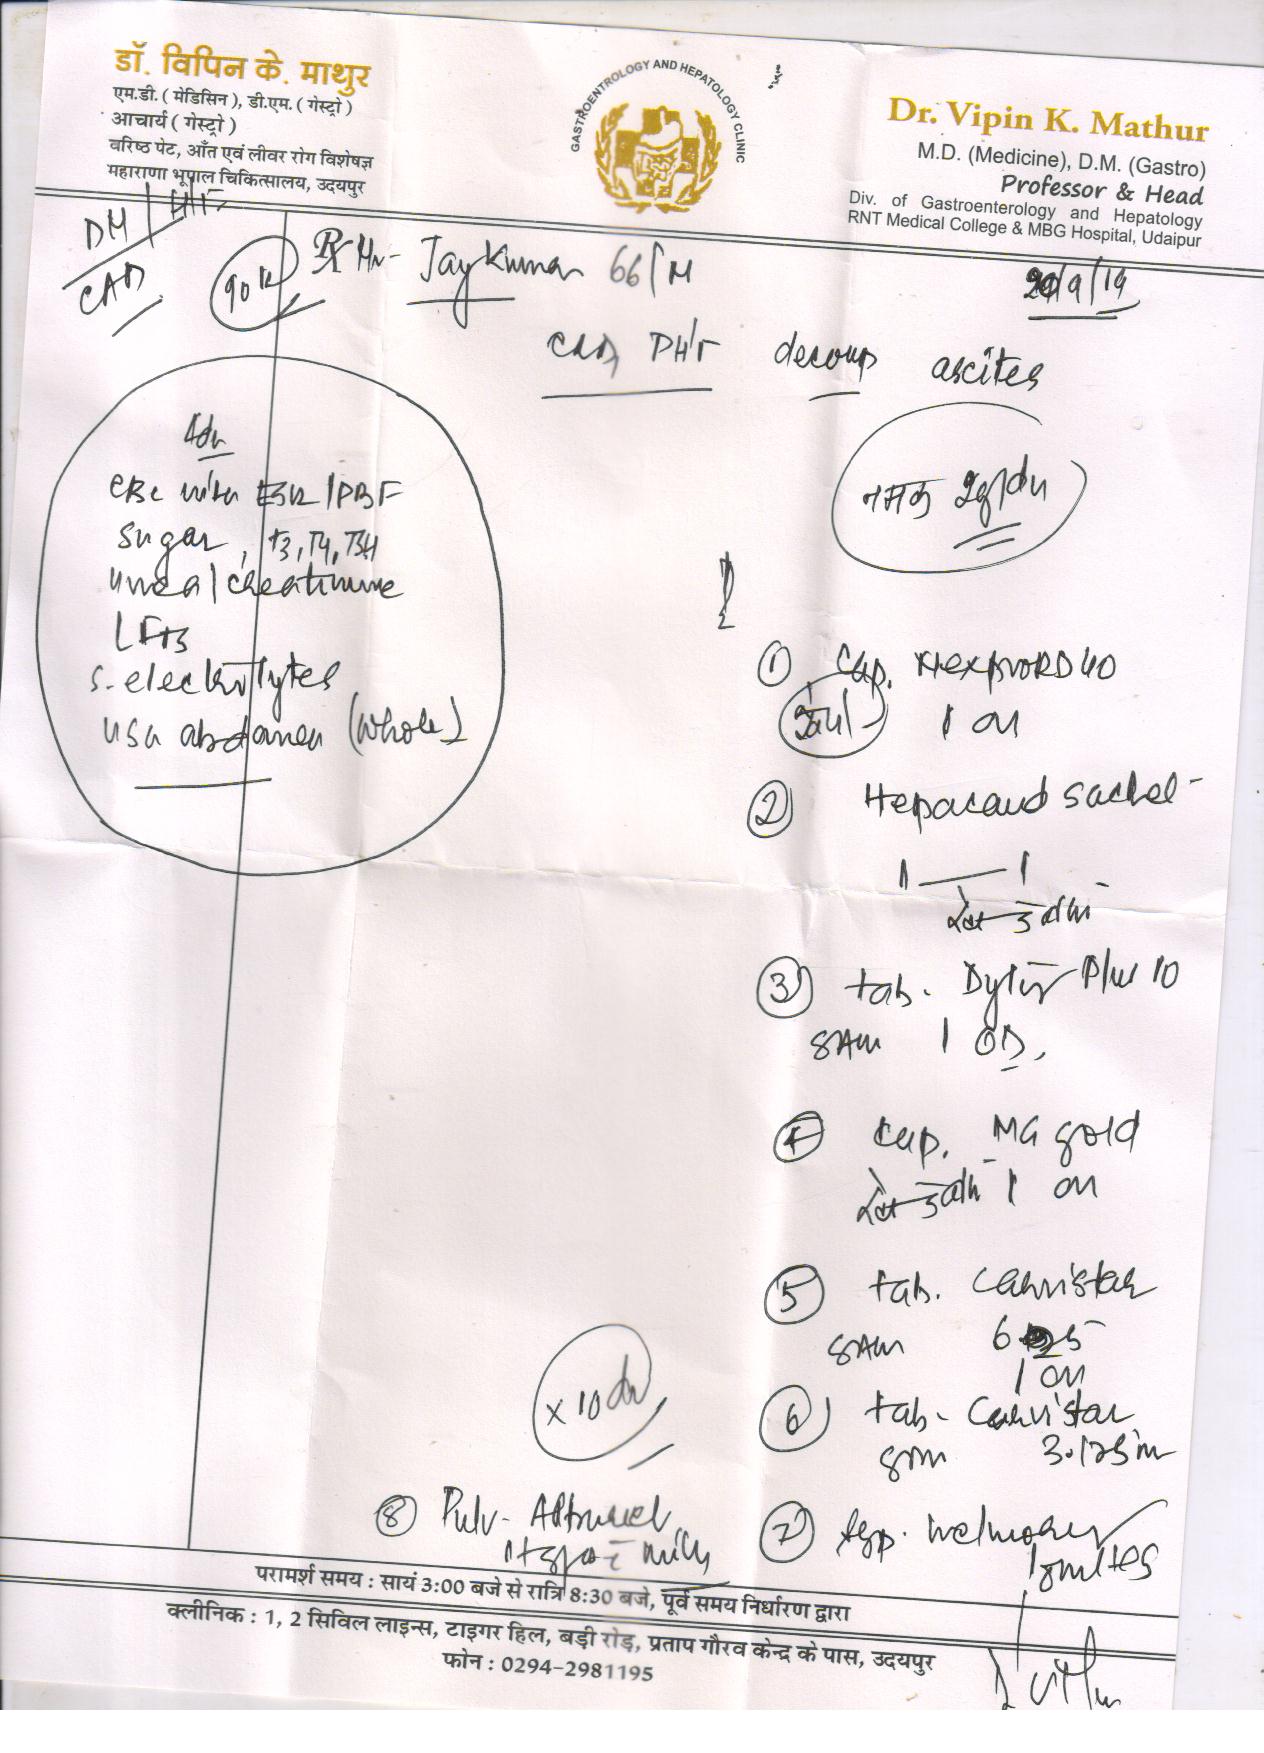 डॉ. विपिन के. माथुर
एम.डी. ( मेडिसिन ), डी.एम. ( गेस्ट्रो )
आचार्य ( गेस्ट्रो )
वरिष्ठ पेट, आँत एवं लीवर रोग विशेषज्ञ
महाराणा भूपाल चिकित्सालय, उदयपुर
GASTROENTROLOGY AND HEPATOLOGY CLINIC
Dr. Vipin K. Mathur
M.D. (Medicine), D.M. (Gastro)
Professor & Head
Div. of Gastroenterology and Hepatology
RNT Medical College & MBG Hospital, Udaipur
DM / HT
CAD
Rx Mr- Jay Kumar 66/M
/9/19
CAD, PHT decomp ascites
Adv
CBC with ESR/PBF
Sugar, T3, T4, TSH
urea/creatinine
LFTs
S. electrolytes
USG abdomen (whole)
नमक 2g/day
① Cap. Nexpro RD 40
1 OD
② Hepacaud sachet
1 — 1
③ tab. Dytor Plus 10
8AM 1 OD,
④ Cap. MG gold
1 OD
⑤ tab. Carvistar
8AM 6.25
1 OD
⑥ tab- Carvistar
8PM 3.125
x 10 day
⑦
⑧ Pulv-
milk
परामर्श समय : सायं 3:00 बजे से रात्रि 8:30 बजे, पूर्व समय निर्धारण द्वारा
क्लीनिक : 1, 2 सिविल लाइन्स, टाइगर हिल, बड़ी रोड़, प्रताप गौरव केन्द्र के पास, उदयपुर
फोन : 0294-2981195